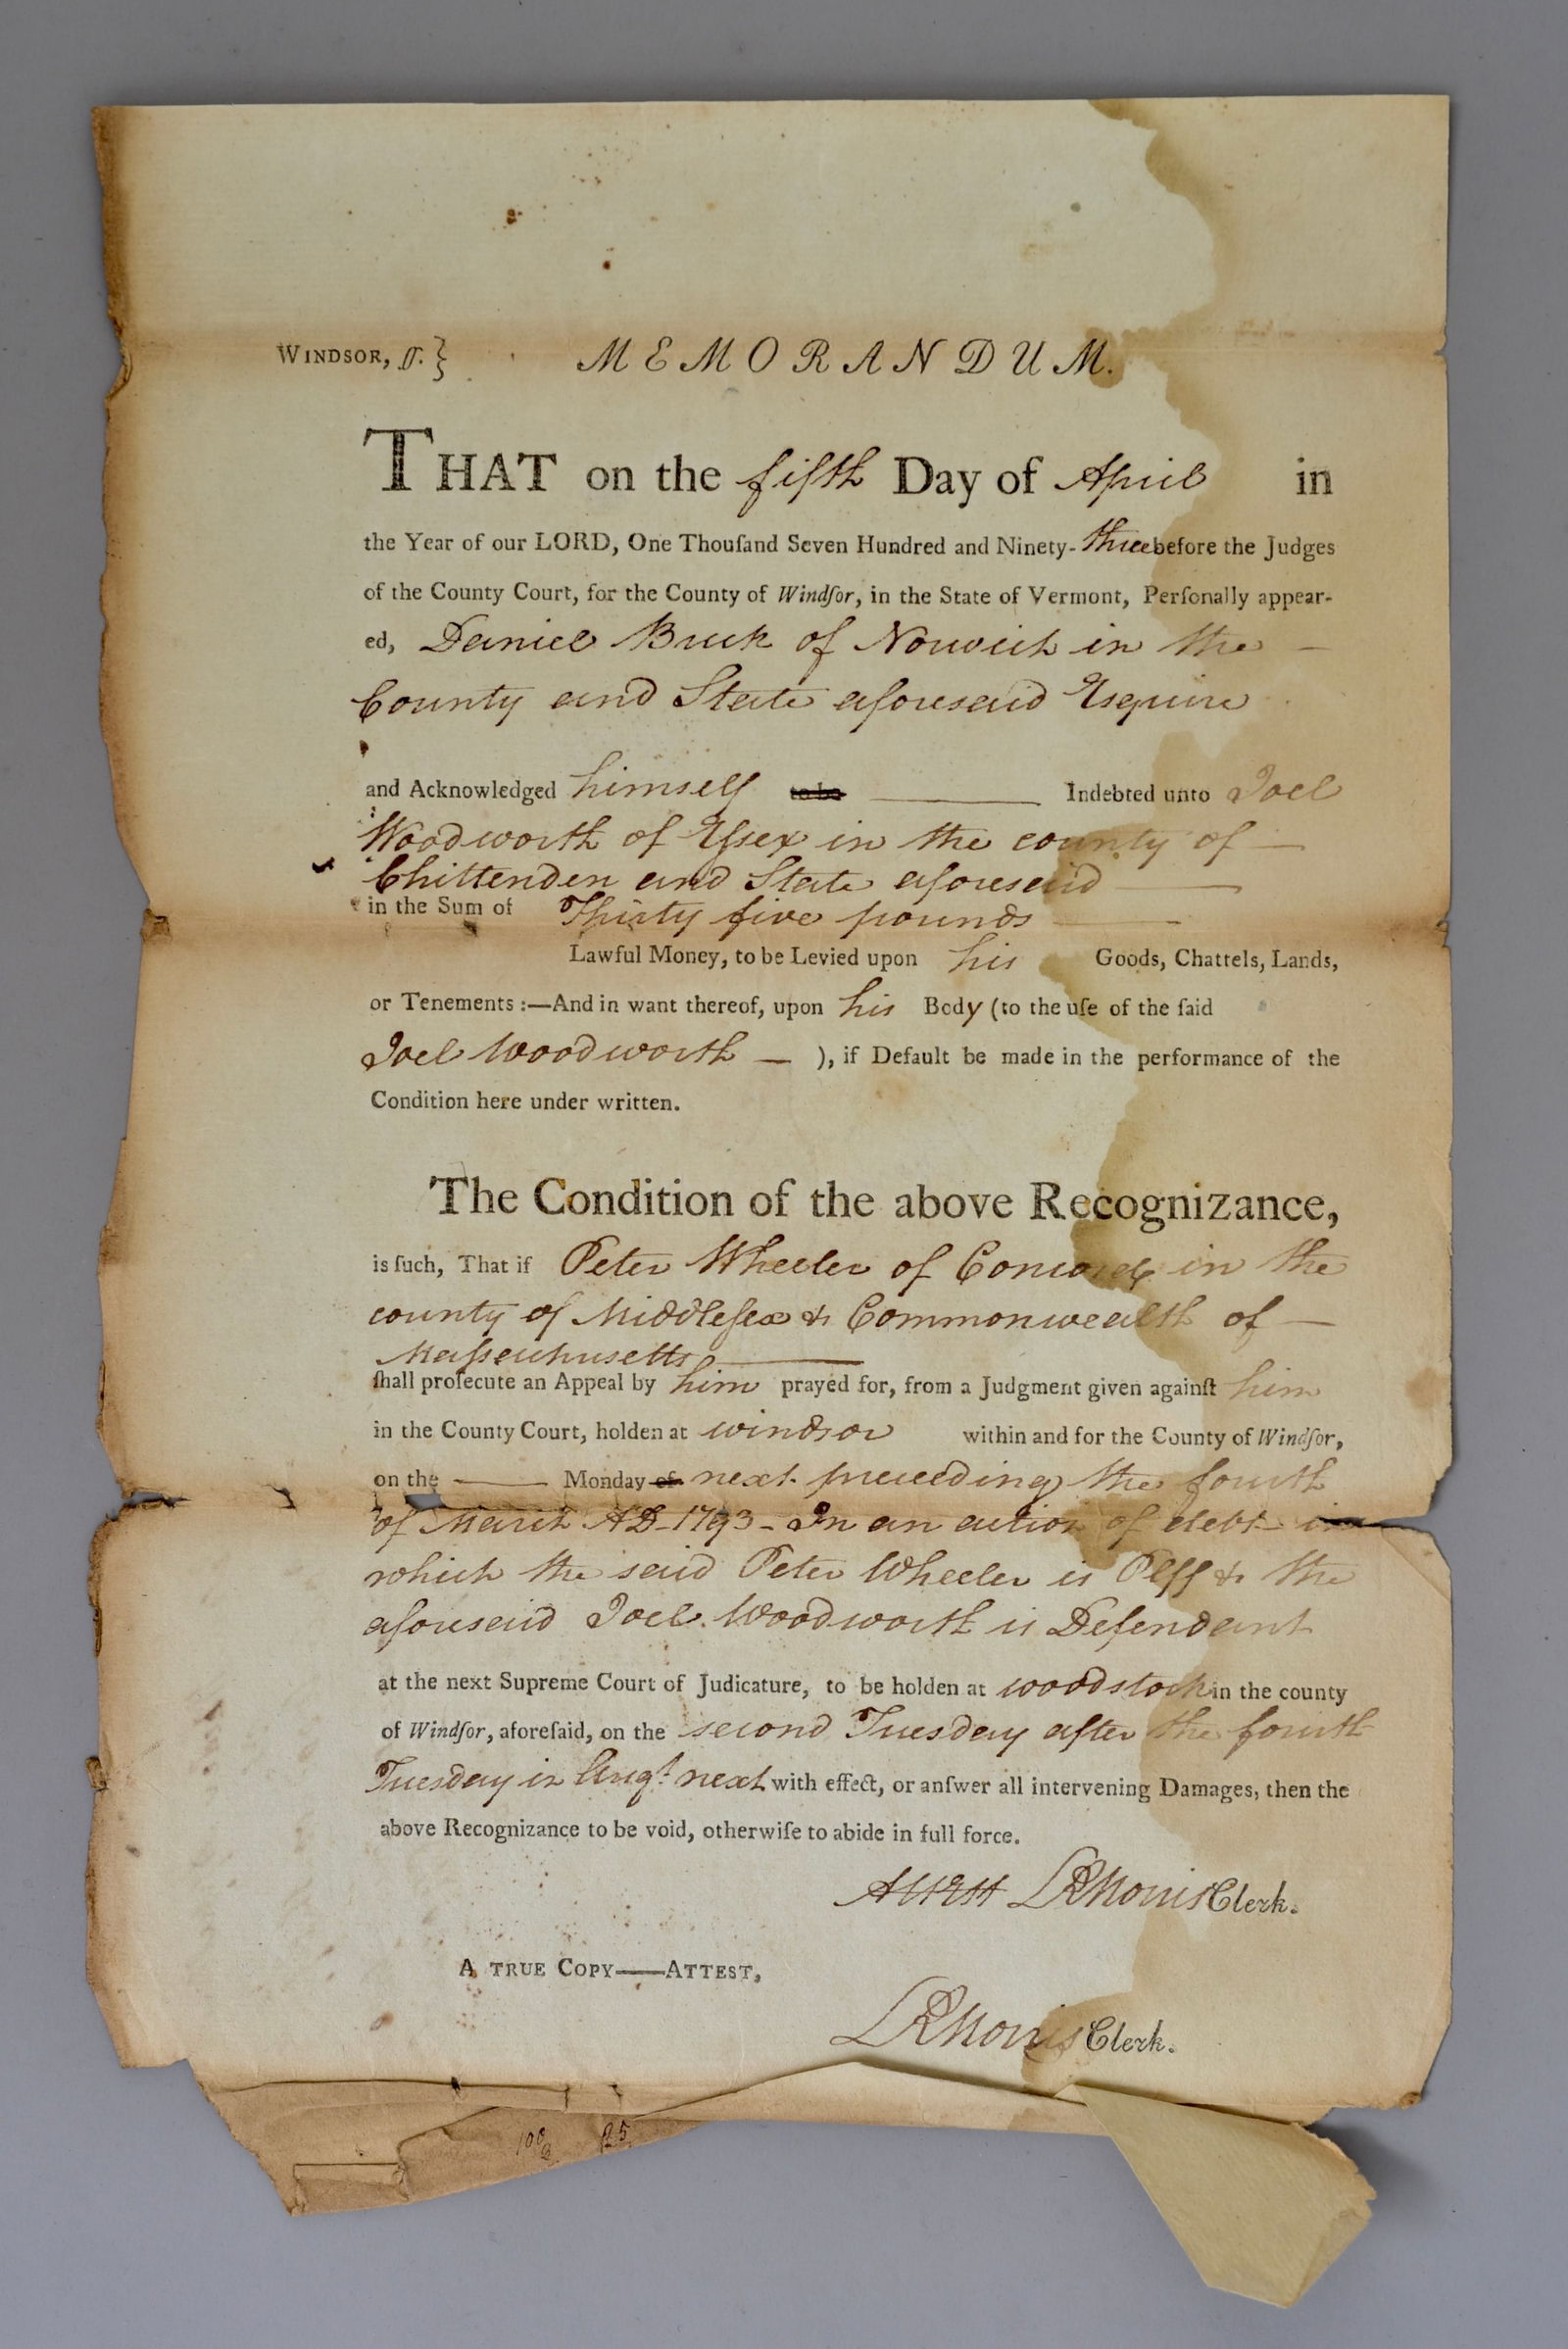 WINDSOR, ſſ. }
MEMORANDUM.
THAT on the fifth Day of April in
the Year of our LORD, One Thouſand Seven Hundred and Ninety-three before the Judges
of the County Court, for the County of Windſor, in the State of Vermont, Perſonally appear-
ed, Daniel Buck of Norwich in the —
County and State aforesaid Esquire
and Acknowledged himself to be —— Indebted unto Joel
Woodworth of Eſsex in the county of —
Chittenden and State aforesaid ——
in the Sum of Thirty five pounds ——
Lawful Money, to be Levied upon his Goods, Chattels, Lands,
or Tenements :—And in want thereof, upon his Body (to the uſe of the ſaid
Joel Woodworth — ), if Default be made in the performance of the
Condition here under written.
The Condition of the above Recognizance,
is ſuch, That if Peter Wheeler of Concord in the
county of Middleſex & Commonwealth of —
Maſsachusetts ——
ſhall proſecute an Appeal by him prayed for, from a Judgment given againſt him
in the County Court, holden at windsor within and for the County of Windſor,
on the —— Monday of next preceeding the fourth
of March AD-1793- In an action of debt- in
which the said Peter Wheeler is Plff & the
aforesaid Joel Woodworth is Defendant
at the next Supreme Court of Judicature, to be holden at woodstock in the county
of Windſor, aforeſaid, on the second Tuesday after the fourth
Tuesday in Augt. next with effect, or anſwer all intervening Damages, then the
above Recognizance to be void, otherwiſe to abide in full force.
Attest LRMorris Clerk.
A TRUE COPY——ATTEST,
LRMorris Clerk.